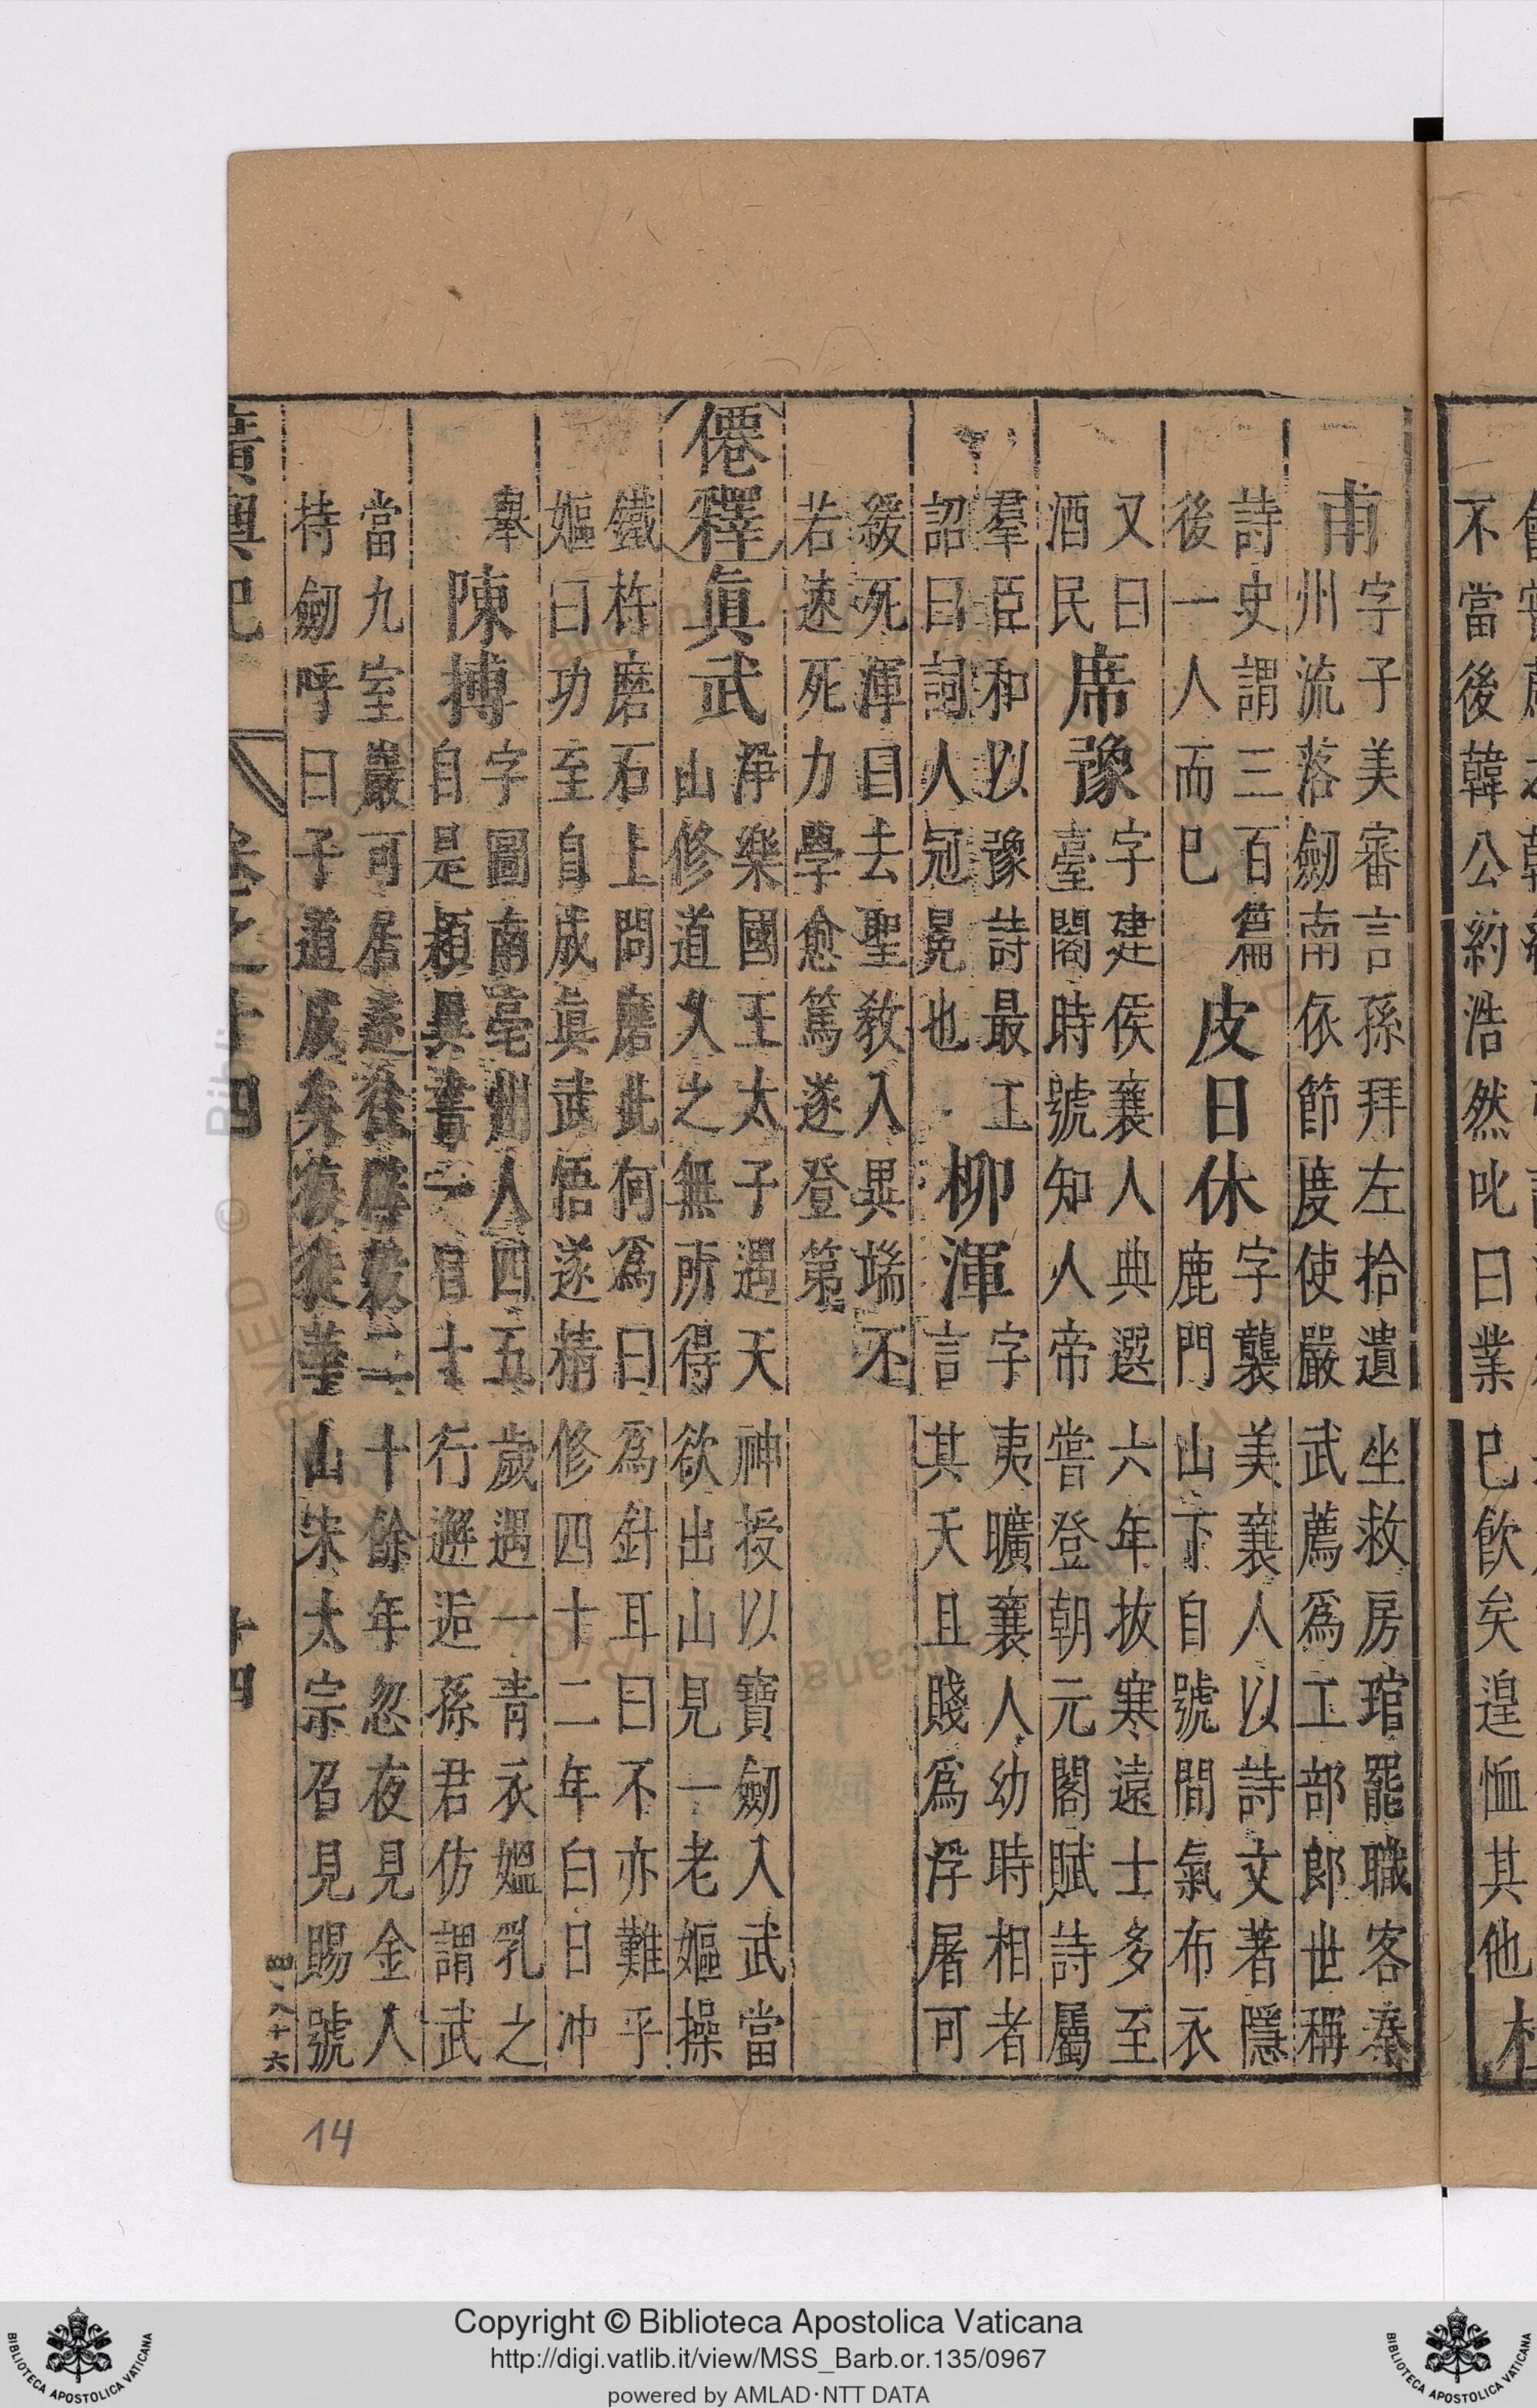 甫
字子美審言孫拜左拾遺坐救房琯罷職客秦
州流落劒南依節度使嚴武薦爲工部郎世稱
詩史謂三百篇
後一人而巳
皮日休
字襲美襄人以詩文著隱
鹿門山下自號間氣布衣
又曰
酒民
席豫
字建侯襄人典選六年拔寒遠士多至
臺閣時號知人帝嘗登朝元閣賦詩屬
羣臣和以豫詩最工
詔曰詞人冠冕也
柳渾
字夷曠襄人幼時相者
言其夭且賤爲浮屠可
緩死渾曰去聖敎入異端不
若速死力學愈篤遂登第
僊釋
眞武
淨樂國王太子遇天神授以寶劒入武當
山修道久之無所得欲出山見一老嫗操
鐵杵磨石上問磨此何爲曰爲針耳曰不亦難乎
嫗曰功至自成眞武悟遂精修四十二年白日冲
舉
陳摶
字圖南亳州人四五歲遇一青衣媼乳之
自是穎異書一目十行邂逅孫君仿謂武
當九室巖可居遂往辟穀二十餘年忽夜見金人
持劒呼曰子道成矣後徙華山宋太宗召見賜號
廣輿記
卷之十四
廿四
四八十六
14
不當後韓公約浩然叱曰業巳飲矣遑恤其他
杜
Copyright © Biblioteca Apostolica Vaticana
http://digi.vatlib.it/view/MSS_Barb.or.135/0967
powered by AMLAD·NTT DATA
BIBLIOTECA APOSTOLICA VATICANA
BIBLIOTECA APOSTOLICA VATICANA